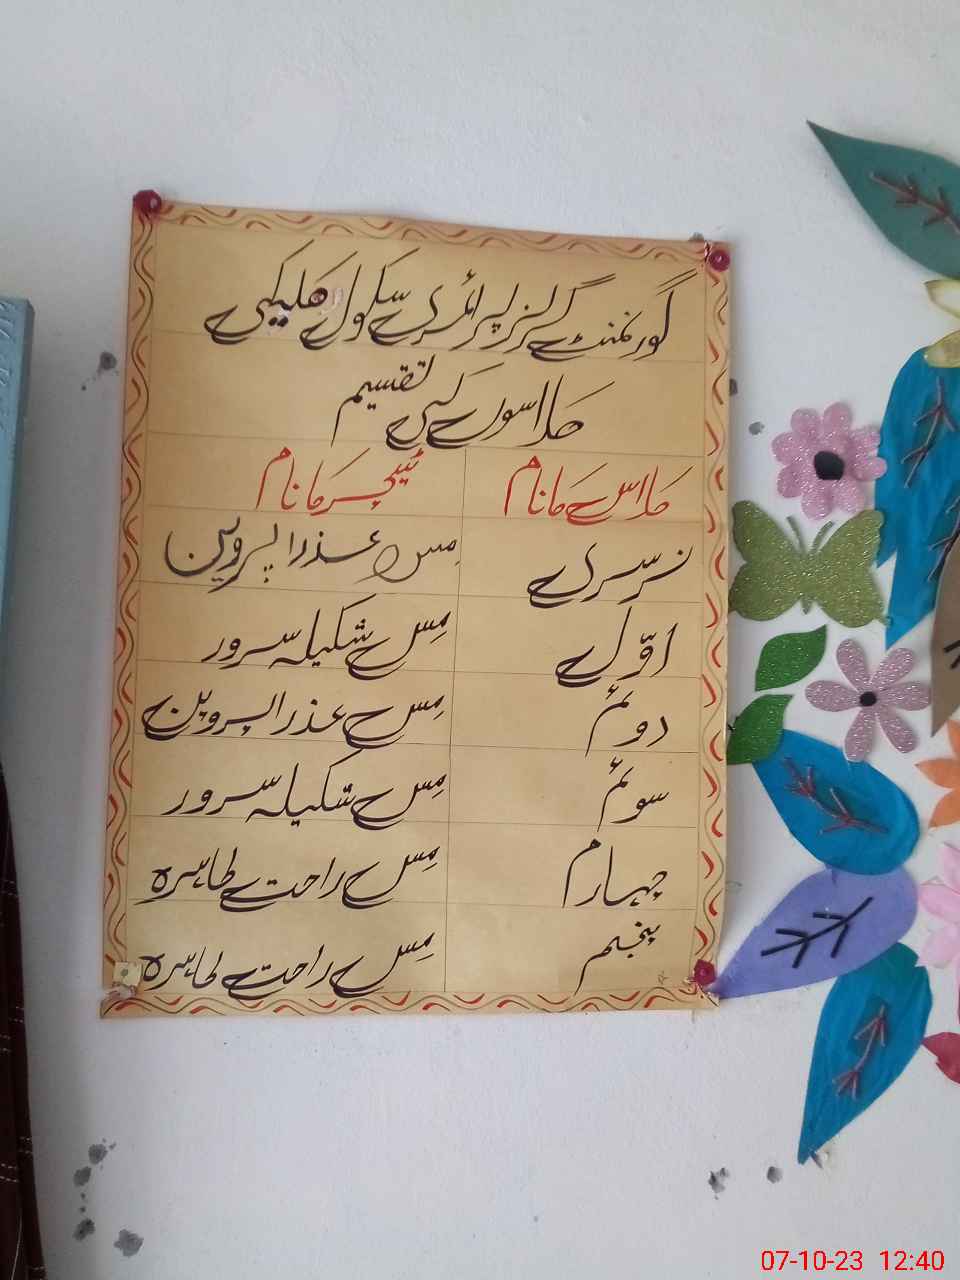 گورنمنٹ گرلز پرائمری سکول ھلیکی
کلاسوں کی تقسیم
کلاس کا نام ٹیچر کا نام
نرسری مس عذرا پروین
اوّل مس شکیلہ سرور
دوئم مس عذرا پروین
سوئم مس شکیلہ سرور
چہارم مس راحت طاہرہ
پنجم مس راحت طاہرہ
07-10-23 12:40